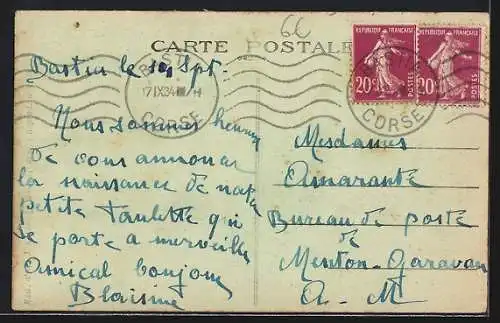 6L
CARTE POSTALE
Bastia le 16 Spt.
BASTIA
17 IX 34
CORSE
REPUBLIQUE FRANÇAISE
20c POSTES
REPUBLIQUE FRANÇAISE
20c POSTES
CORSE
Nous sommes heureux
de vous annoncer
la naissance de notre
petite Paulette qui
se porte a merveille
Amical bonjour
Blaisine
Mesdames
Amarante
Bureau de poste
de
Menton-Garavan
A-M